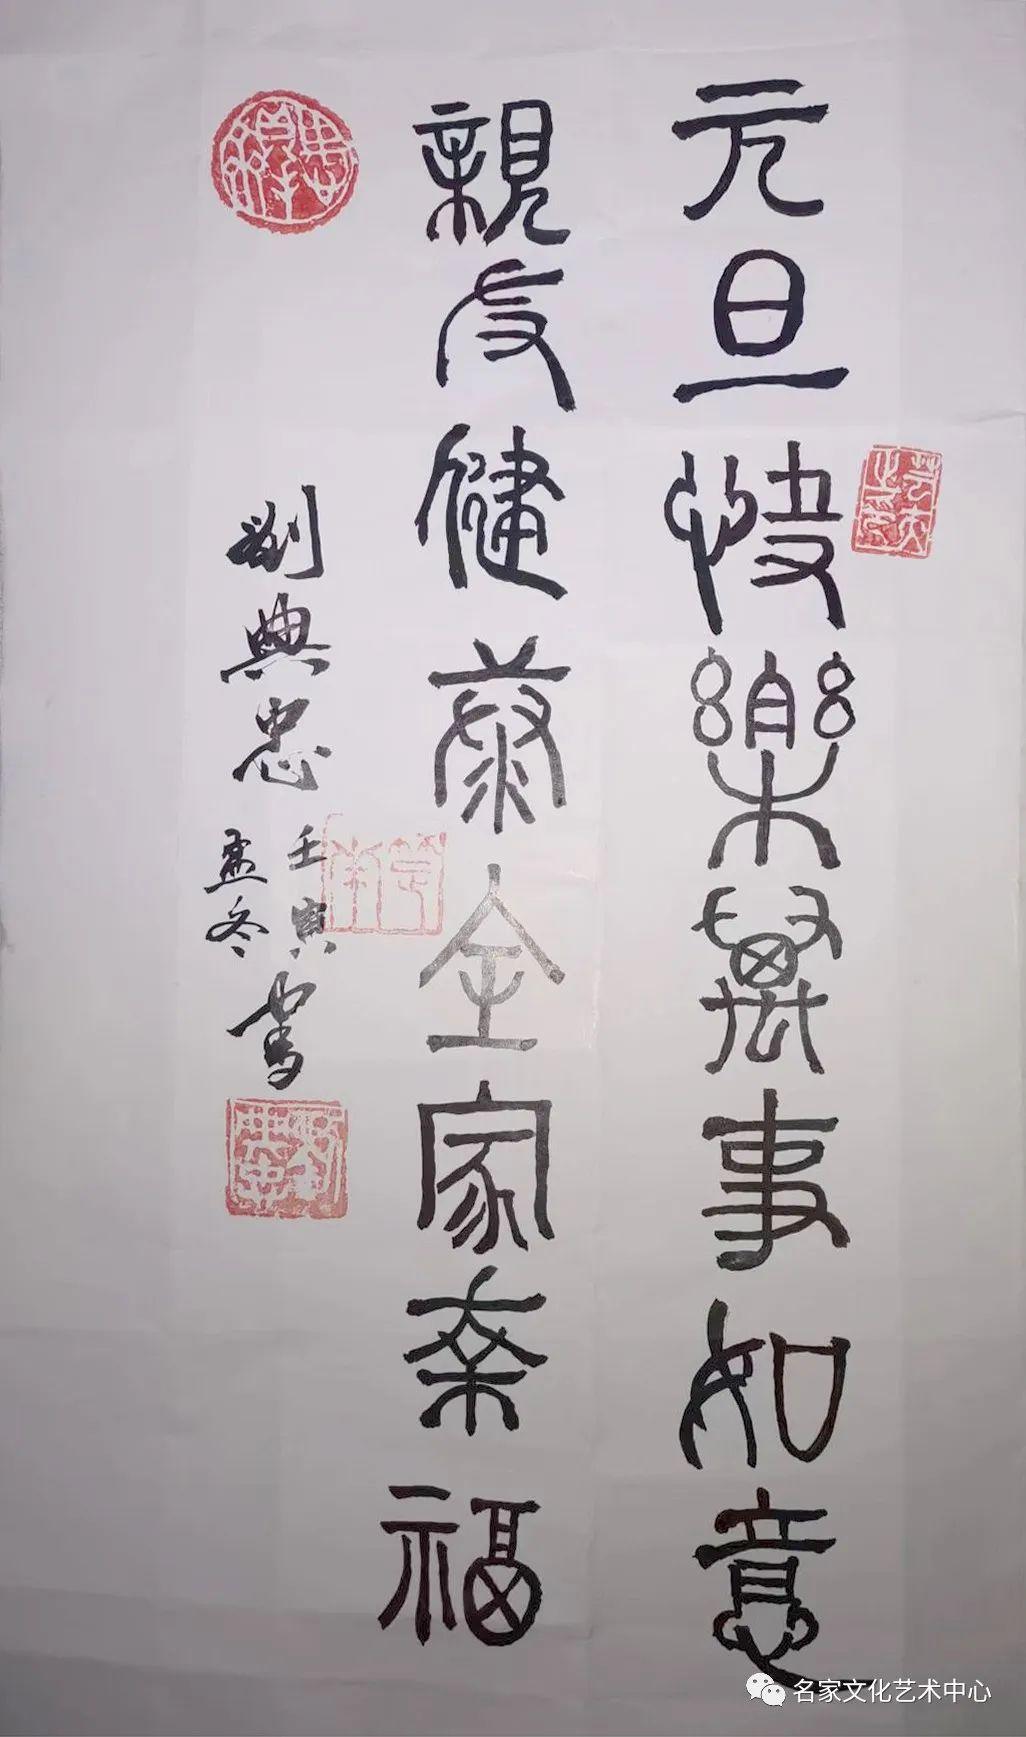 元旦快樂萬事如意
親友健康全家幸福
劉典忠
壬寅
孟冬
寫
劉典忠
名家文化艺术中心